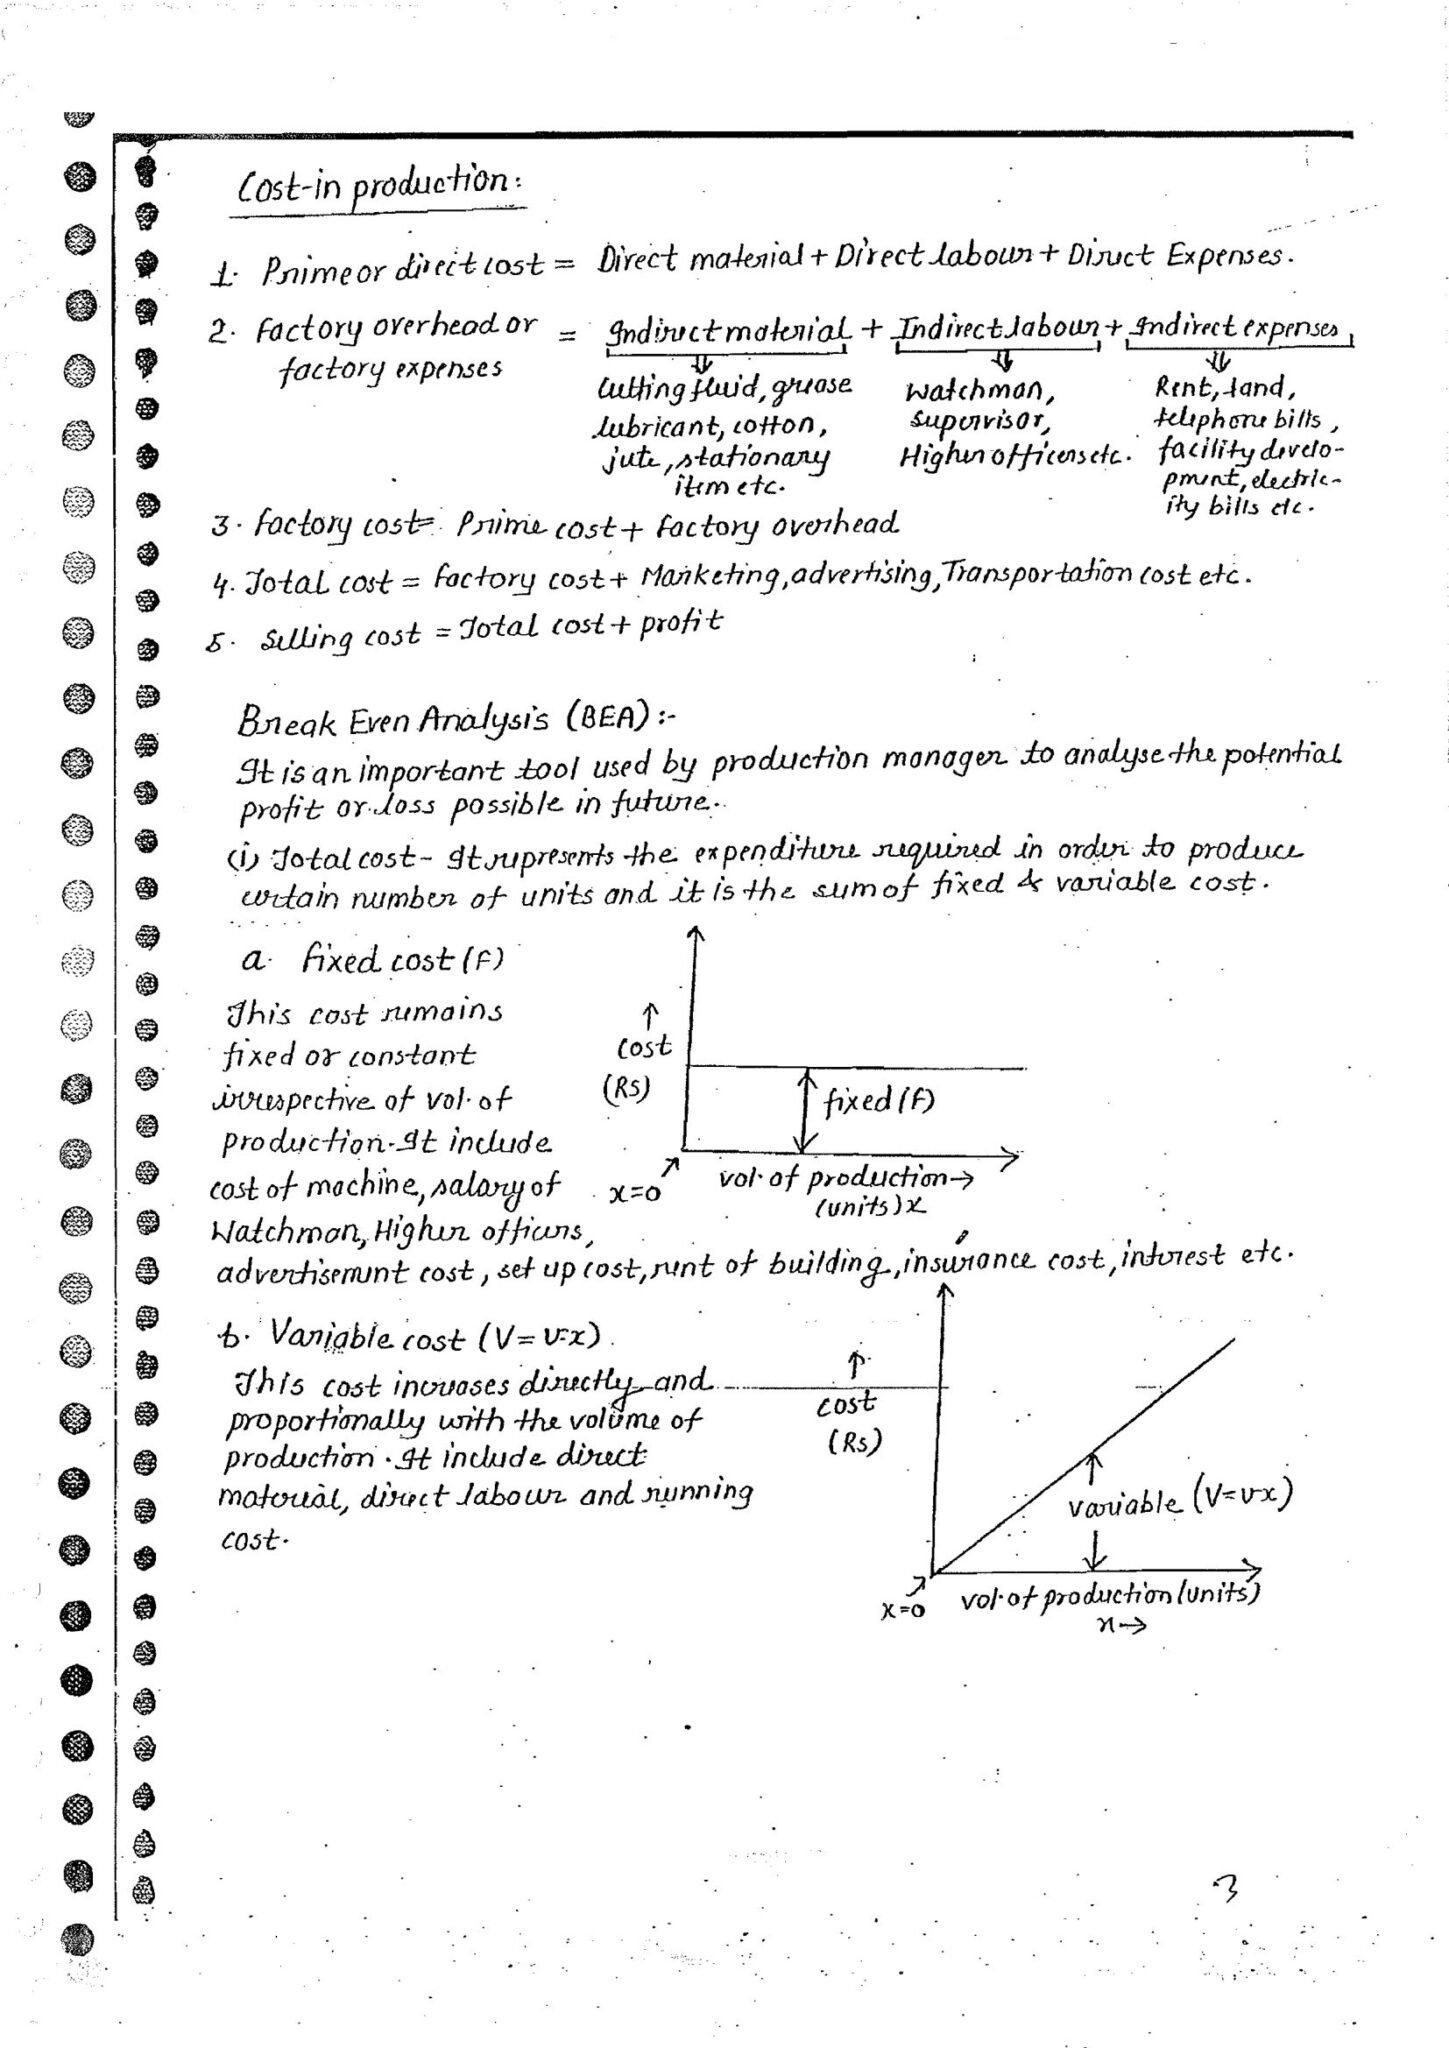 Cost-in production:
1. Prime or direct cost = Direct material + Direct labour + Direct Expenses.
2. Factory overhead or = Indirect material + Indirect labour + Indirect expenses
factory expenses
Cutting fluid, grease
lubricant, cotton,
jute, stationary
item etc.
Watchman,
supervisor,
Higher officers etc.
Rent, land,
telephone bills,
facility develo-
pment, electric-
ity bills etc.
3. factory cost = Prime cost + factory overhead
4. Total cost = factory cost + Marketing, advertising, Transportation cost etc.
5. Selling cost = Total cost + profit
Break Even Analysis (BEA) :-
It is an important tool used by production manager to analyse the potential
profit or loss possible in future.
(i) Total cost - It represents the expenditure required in order to produce
certain number of units and it is the sum of fixed & variable cost.
a. fixed cost (F)
This cost remains
fixed or constant
irrespective of vol. of
production. It include
cost of machine, salary of
Watchman, Higher officers,
advertisement cost, set up cost, rent of building, insurance cost, interest etc.
↑
cost
(Rs)
fixed (F)
x=0
vol. of production →
(units) x
b. Variable cost (V = v·x)
This cost increases directly and
proportionally with the volume of
production. It include direct
material, direct labour and running
cost.
↑
cost
(Rs)
variable (V = v·x)
x=0
vol. of production (units)
x →
3